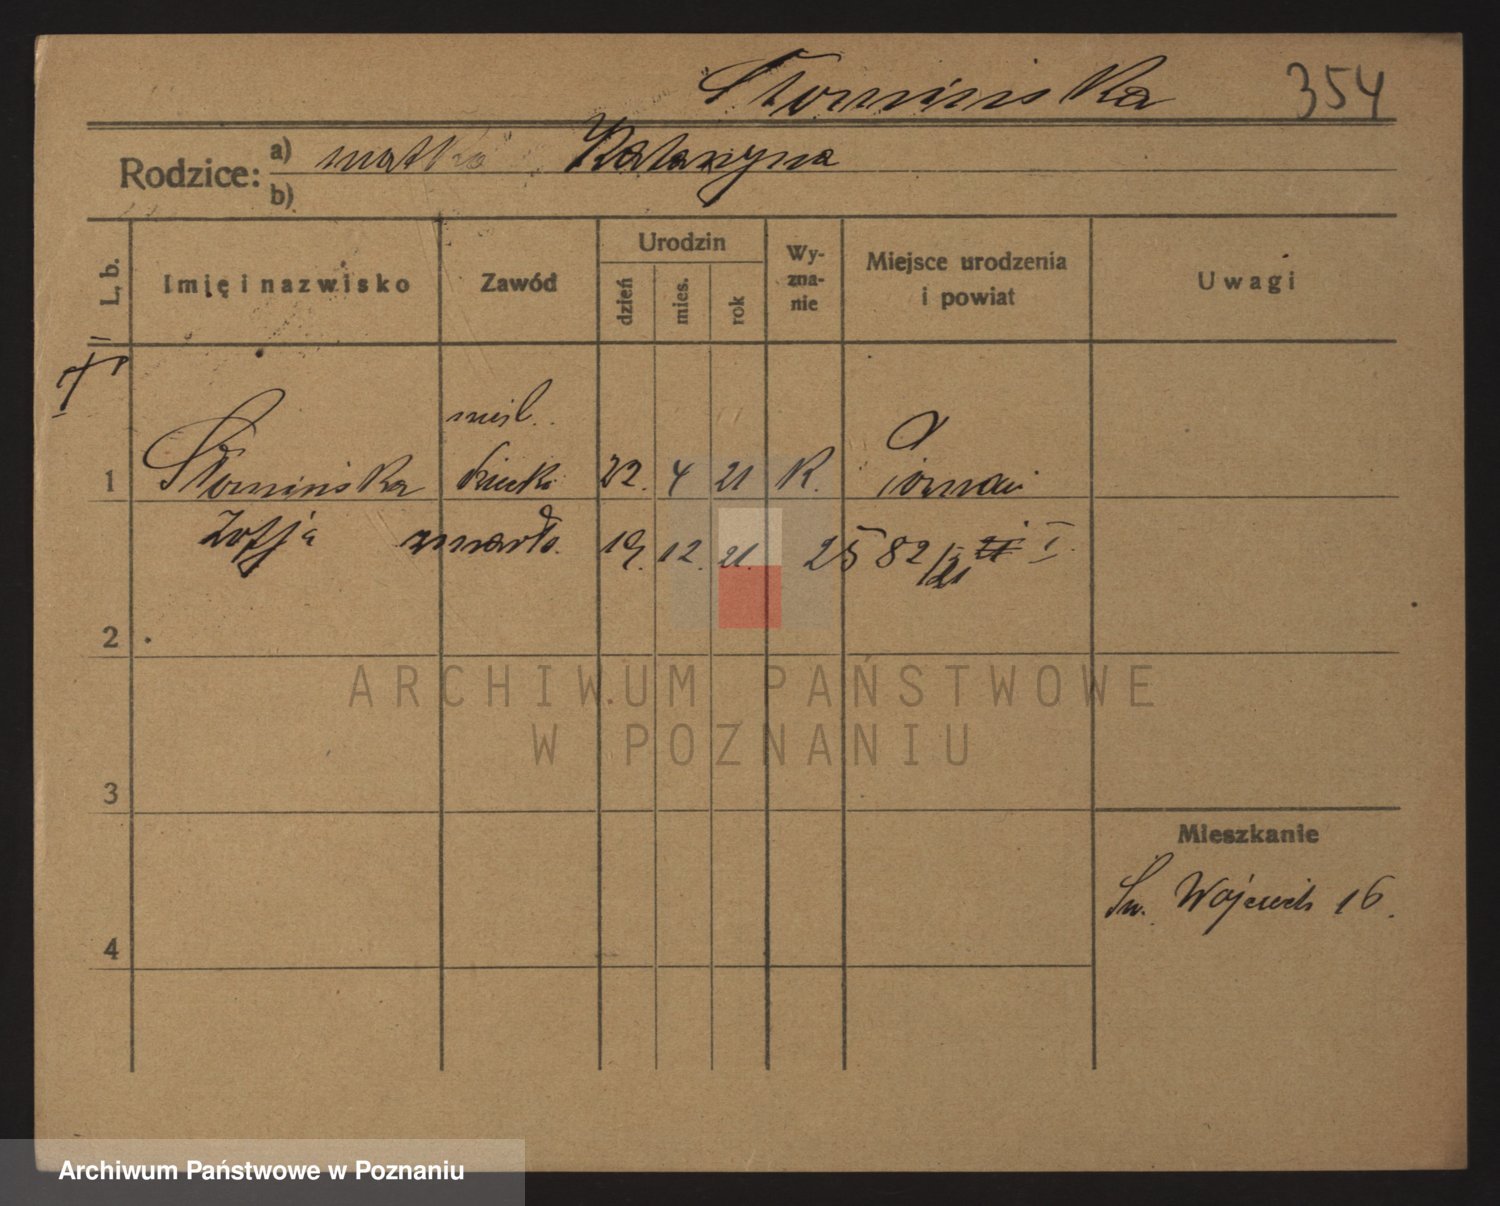 Słomińska 354
Rodzice: a) matka Katarzyna
b)
L. b.
Imię i nazwisko
Zawód
Urodzin
dzień
mies.
rok
Wy-
zna-
nie
Miejsce urodzenia
i powiat
Uwagi
nieśl.
1 Słomińska dziecko 22. 4 21 K. Poznań
Zofja zmarło. 19. 12. 21. 2582/21 I.
2
3
4
Mieszkanie
Św. Wojciech 16.
ARCHIWUM PAŃSTWOWE
W POZNANIU
Archiwum Państwowe w Poznaniu